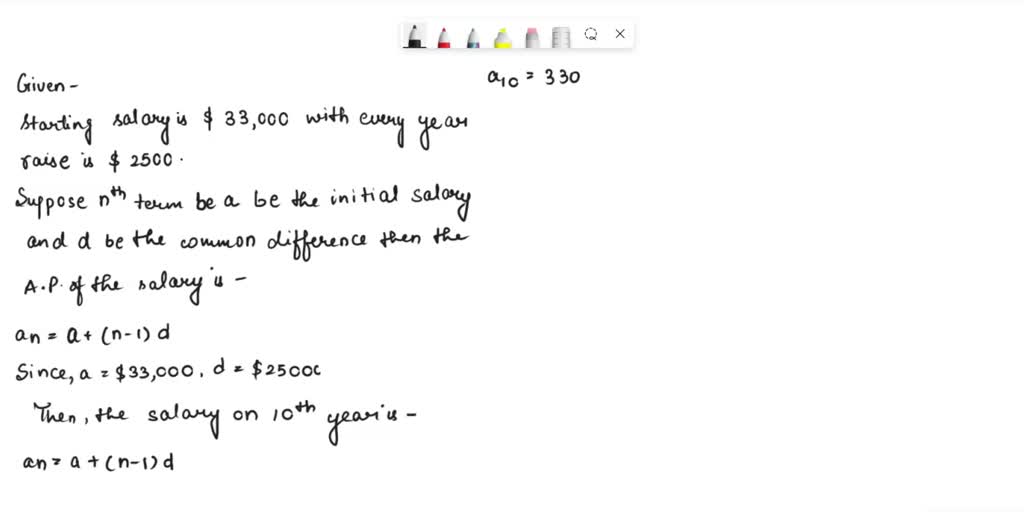 Given-
Starting salary is $ 33,000 with every year
raise is $ 2500.
Suppose nth term be a be the initial salary
and d be the common difference then the
A.P. of the salary is -
an = a + (n-1) d
Since, a = $33,000, d = $2500
Then, the salary on 10th year is -
an = a + (n-1) d
a10 = 330